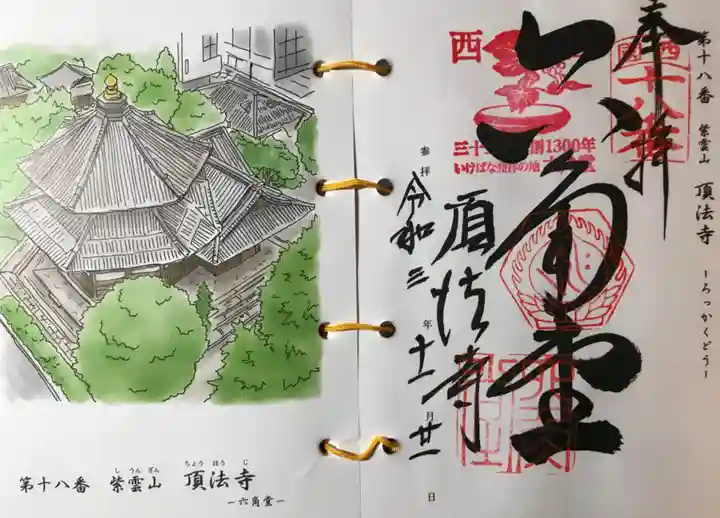 第十八番 紫雲山 頂法寺
ーろっかくどうー
奉拝
西国
十八番
六角堂
西
1300年
いけばな発祥の地
頂法寺
参拝
令和三年十一月廿一日
し うん ざん ちょう ほう じ
第十八番 紫雲山 頂法寺
ー六角堂ー